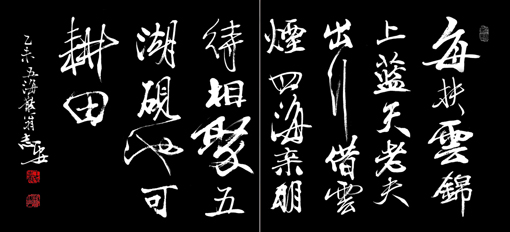 每扶雲錦
上蓝天老夫
出行借雲
煙四海亲朋
待相聚五
湖砚池可
耕田
乙未五海散翁志安